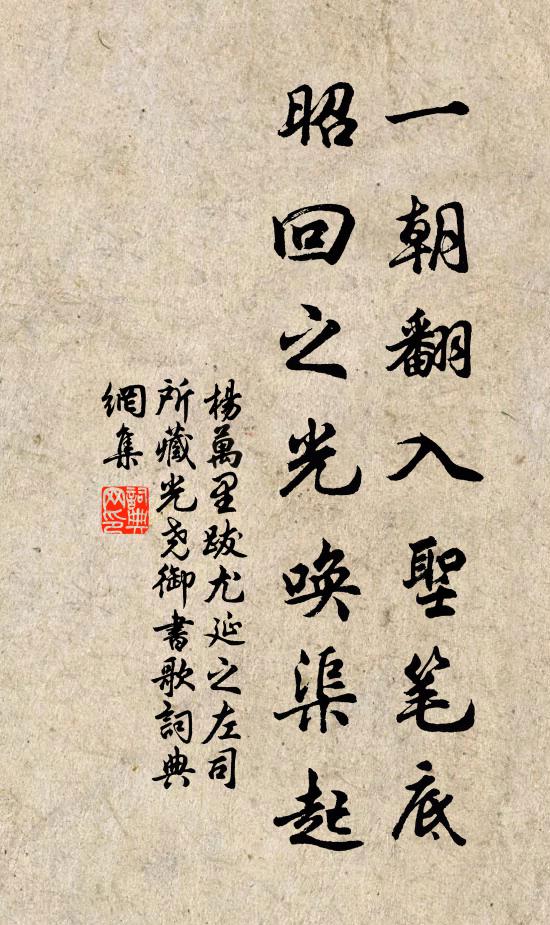 一朝翻入聖笔底
昭回之光喚渠起
楊萬里跋尤延之左司
所藏光尧御書歌詞典
網集
詞典
网印